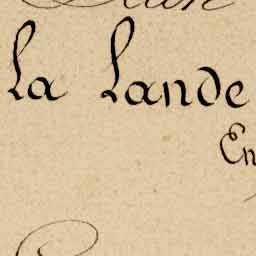 la Lande
En